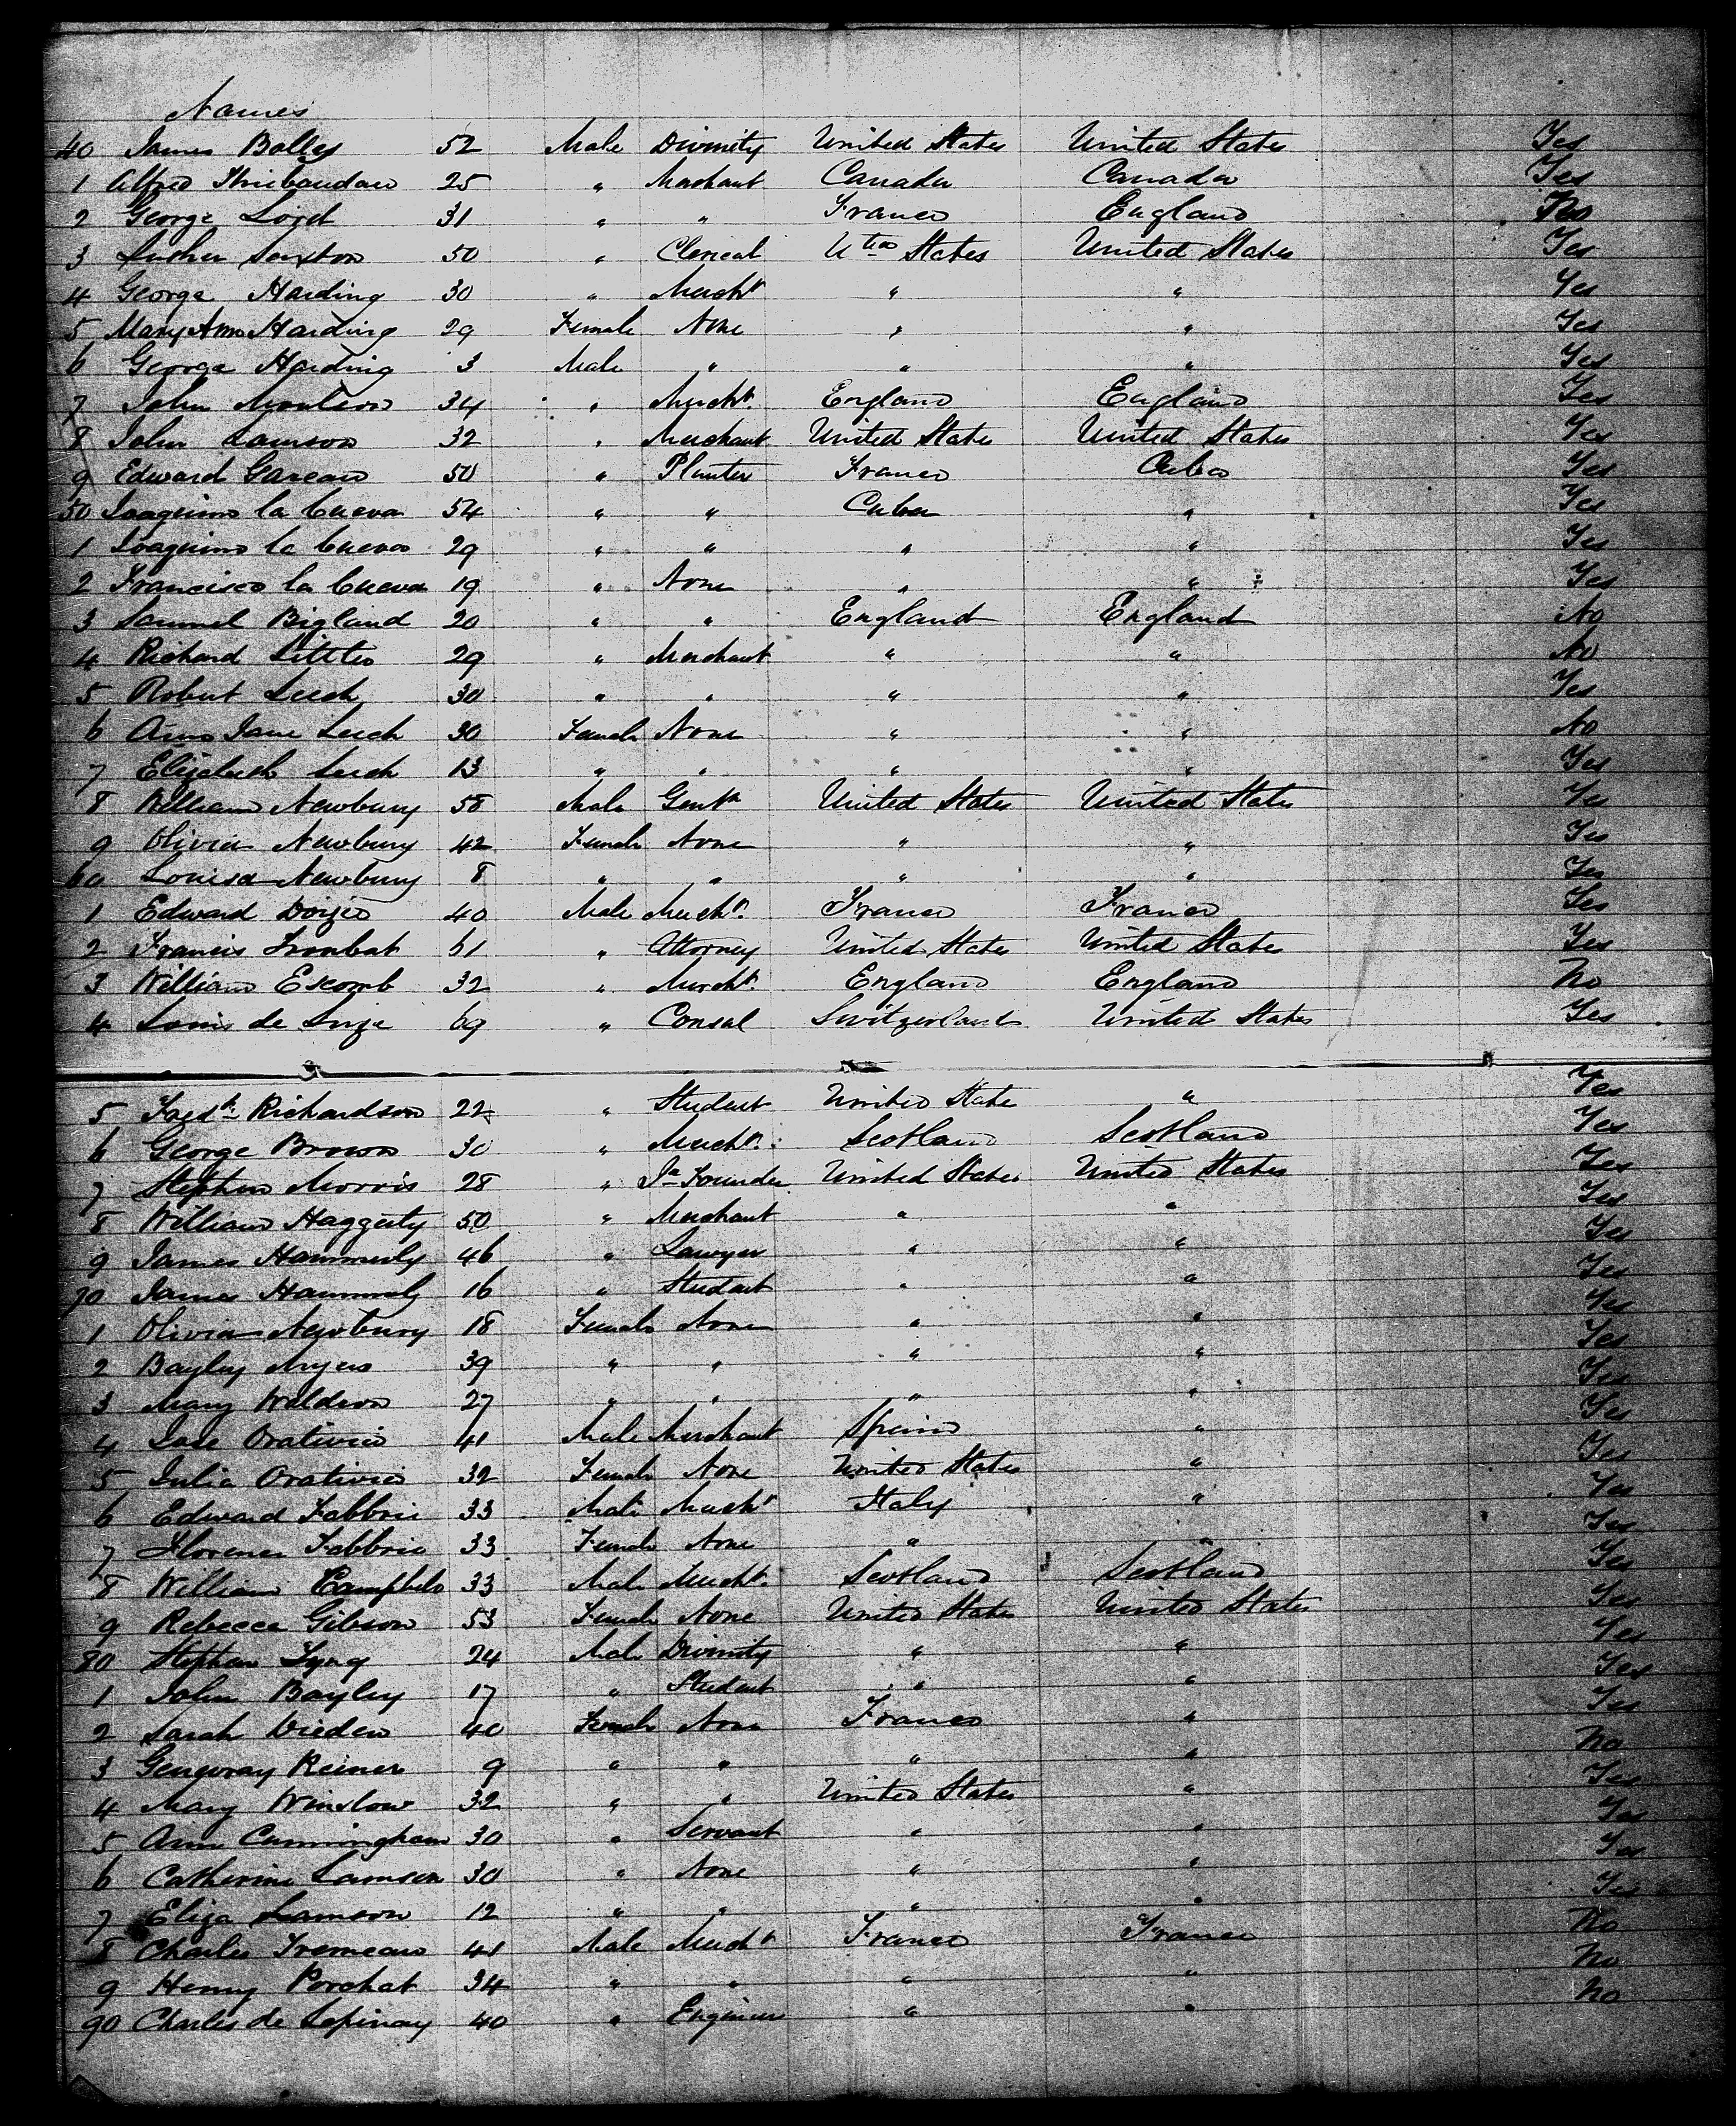 Names
40 James Bolles 52 Male Divinity United States United States Yes
1 Alfred Thiebaudau 25 " Merchant Canada Canada Yes
2 George Lord 31 " " France England
3 Luther Sexton 50 " Clerical Uted States United States Yes
4 George Harding 30 " Mercht " " Yes
5 Mary Ann Harding 29 Female None " " Yes
6 George Harding 3 Male " " " Yes
7 John 34 " Mercht. England England Yes
8 John Lamson 32 " Merchant United States United States Yes
9 Edward Gareau 50 " Planter France Cuba Yes
50 Joaquimo la Cueva 54 " " Cuba " Yes
1 Joaquimo la Cueva 29 " " " " Yes
2 Francisco la Cueva 19 " None " " Yes
3 Samuel Bigland 20 " " England England No
4 Richard Littler 29 " Merchant " " No
5 Robert Leech 30 " " " " Yes
6 Ann Jane Leech 30 Female None " " No
7 Elizabeth Leech 13 " " " " Yes
8 William Newbury 58 Male Gentn United States United States Yes
9 Olivia Newbury 42 Female None " " Yes
60 Louisa Newbury 8 " " " " Yes
1 Edward 40 Male Mercht. France France Yes
2 Francis 61 " Attorney United States United States Yes
3 William Escomb 32 " Mercht. England England No
4 Louis de Luze 69 " Consul Switzerland United States Yes
5 Richardson 22 " Student United State " Yes
6 George Brown 30 " Mercht. Scotland Scotland Yes
7 Stephen Morris 28 " Founder United States United States Yes
8 William Haggerty 50 " Merchant " " Yes
9 James Hammerly 46 " Lawyer " " Yes
70 James Hammerly 16 " Student " " Yes
1 Olivia Newbury 18 Female None " " Yes
2 Bayley Myers 39 " " " " Yes
3 Mary Waldron 27 " " " " Yes
4 Jose Orativio 41 Male Merchant Spain " Yes
5 Julia Orativio 32 Female None United States " Yes
6 Edward Fabbrie 33 Male Mercht Italy " Yes
7 Florence Fabbrie 33 Female None " " Yes
8 William Campbell 33 Male Mercht. Scotland Scotland Yes
9 Rebecca Gibson 53 Female None United States United States Yes
80 Stephen Tyng 24 Male Divinity " " Yes
1 John Bayley 17 " Student " " Yes
2 Sarah 40 Female None France " Yes
3 Reiner 9 " " " " No
4 Mary Winslow 32 " " United States " Yes
5 Ann Cunningham 30 " Servant " " Yes
6 Catherine Lamson 30 " None " " Yes
7 Eliza Lamson 12 " " " " Yes
8 Charles Tremeau 41 Male Mercht France France No
9 Henry Porchat 34 " " " " No
90 Charles de Lepinay 40 " Engineer " " No